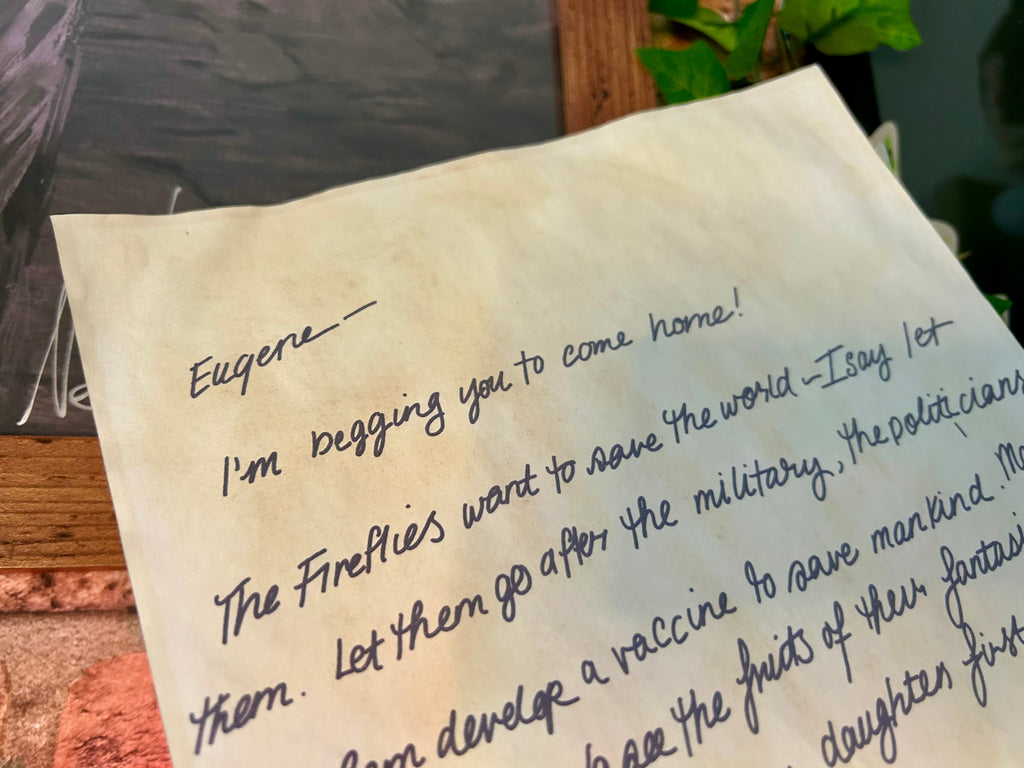 Eugene —
I'm begging you to come home!
The Fireflies want to save the world – I say let
them. Let them go after the military, the politicians
develop a vaccine to save mankind.
see the fruits of their
daughter first
Ne